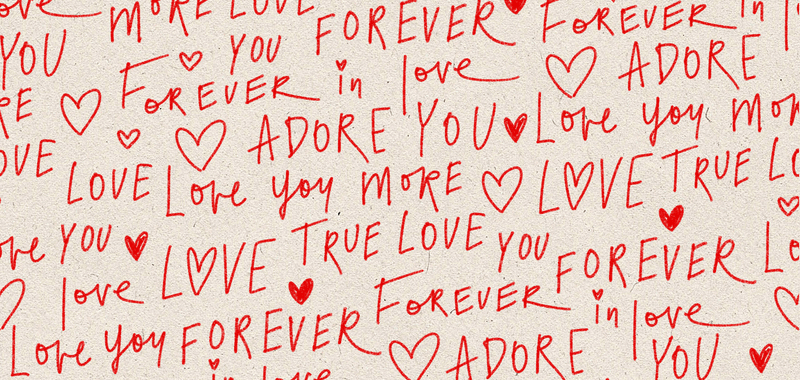 love MORE LOVE FOREVER FOREVER in
YOU YOU FOREVER in love ADORE
RE ADORE YOU Love you MORE
OVE LOVE Love you MORE LOVE TRUE LO
ove YOU LOVE TRUE LOVE YOU FOREVER Lo
love FOREVER in love
Love you FOREVER ADORE YOU
in love